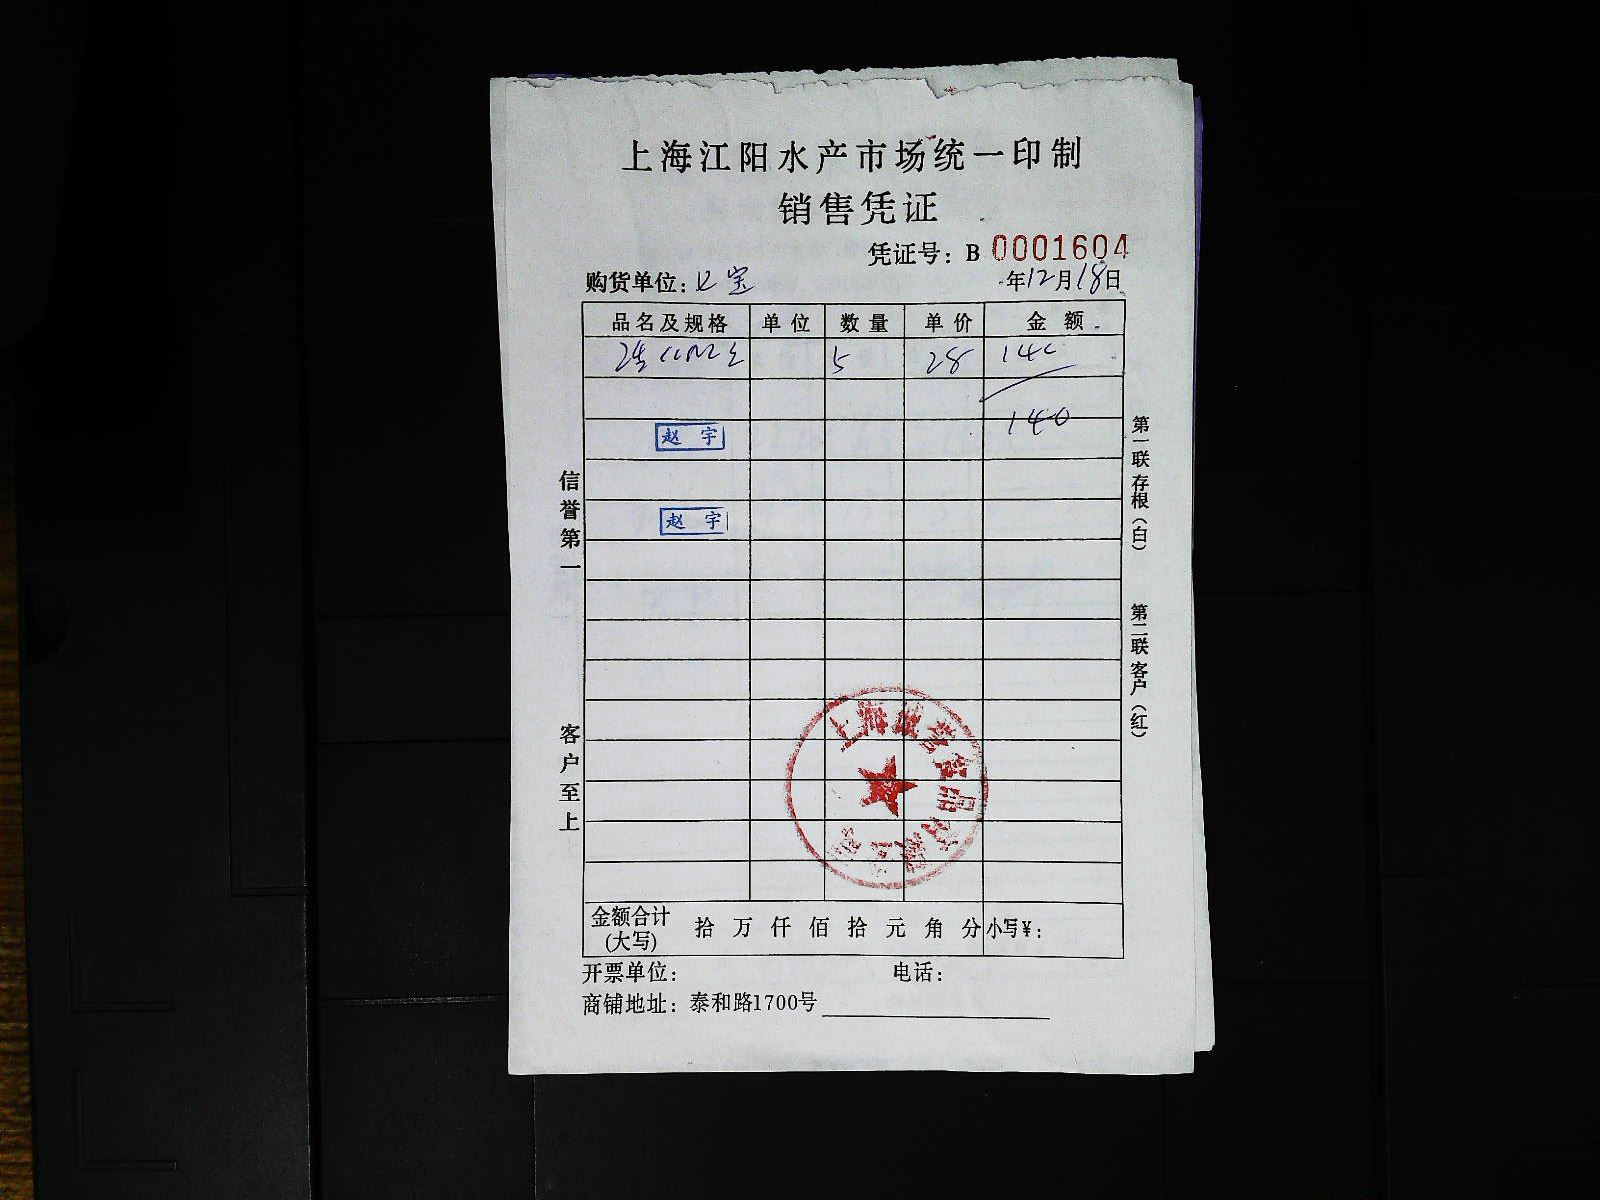 上海江阳水产市场统一印制
销售凭证
凭证号：B 0001604
购货单位：七宝 年12月18日
品名及规格 单位 数量 单价 金额
5 28 140
140
赵宇
赵宇
信誉第一
客户至上
第一联存根（白）
第二联客户（红）
金额合计(大写) 拾 万 仟 佰 拾 元 角 分 小写¥：
开票单位： 电话：
商铺地址：泰和路1700号